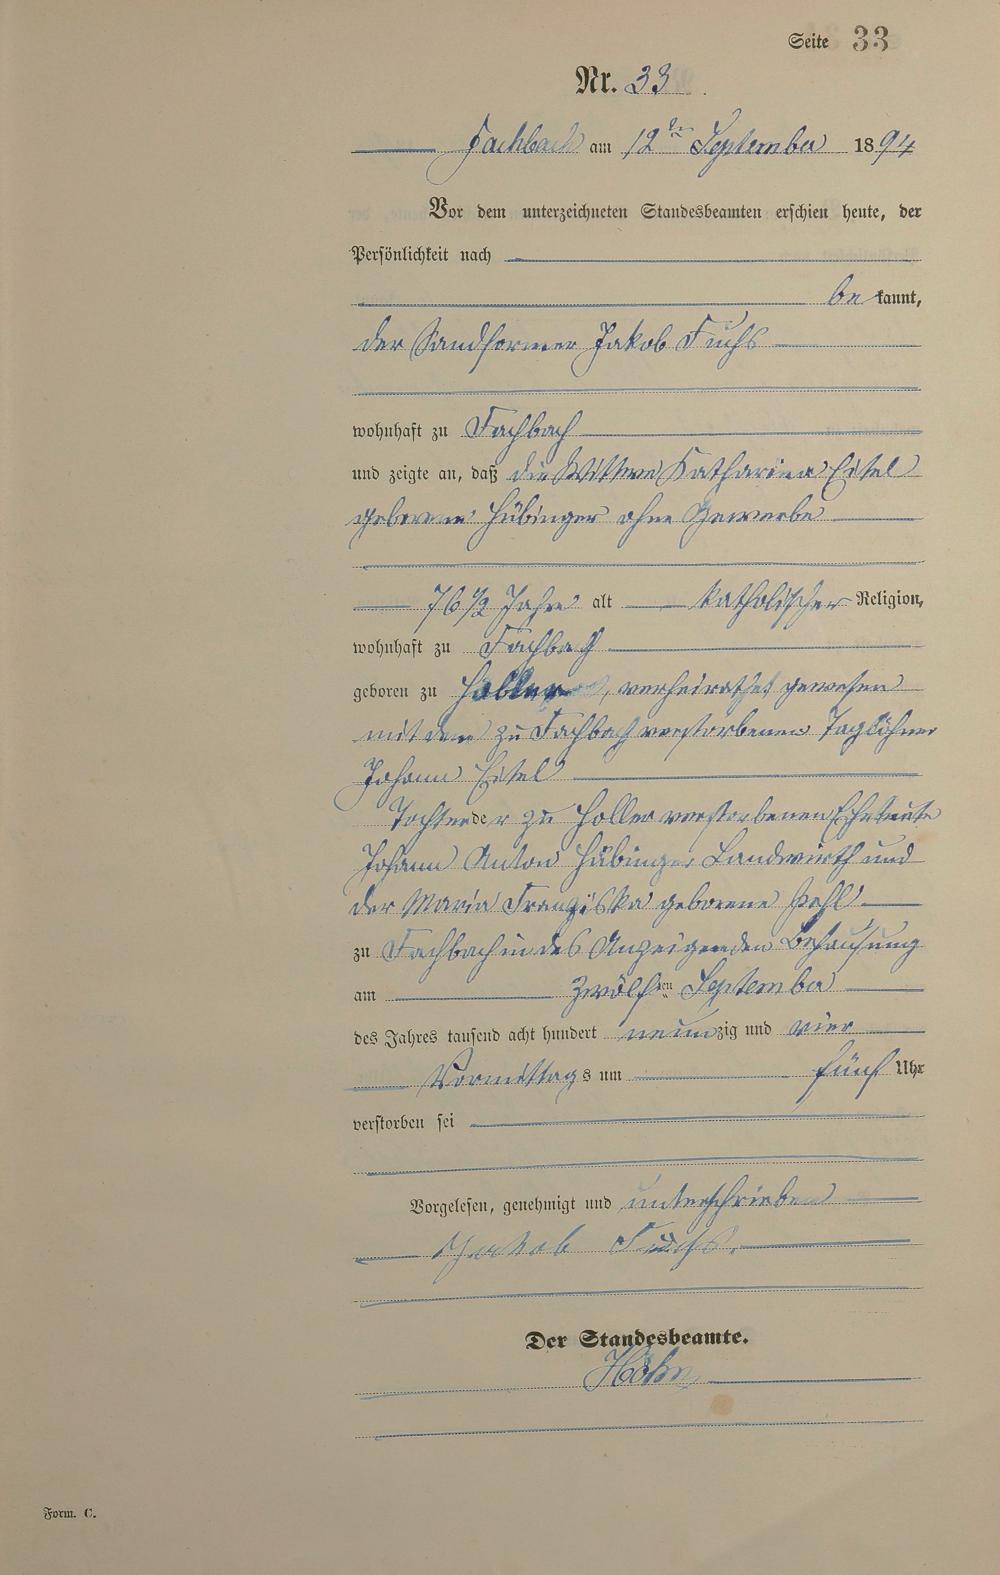 Seite 33
Nr. 33
Fachbach am 12ten September 1894
Vor dem unterzeichneten Standesbeamten erschien heute, der
Persönlichkeit nach
bekannt,
der Sandformer Jakob Fuchs
wohnhaft zu Fachbach
und zeigte an, daß die Wittwe Katharina Eitel
geborene Hübinger ohne Gewerbe
76 1/2 Jahre alt katholischer Religion,
wohnhaft zu Fachbach
geboren zu Holler, verheirathet gewesen
mit dem zu Fachbach verstorbenen Taglöhner
Johann Eitel
Tochter der zu Holler verstorbenen Eheleute
Johann Anton Hübinger Landwirth und
der Maria Franziska geborene
zu Fachbach in des Anzeigenden Behausung
am zwölften September
des Jahres tausend acht hundert neunzig und vier
Vormittags um fünf Uhr
verstorben sei
Vorgelesen, genehmigt und unterschrieben
Jakob Fuchs.
Der Standesbeamte.
Höhn
Form. C.